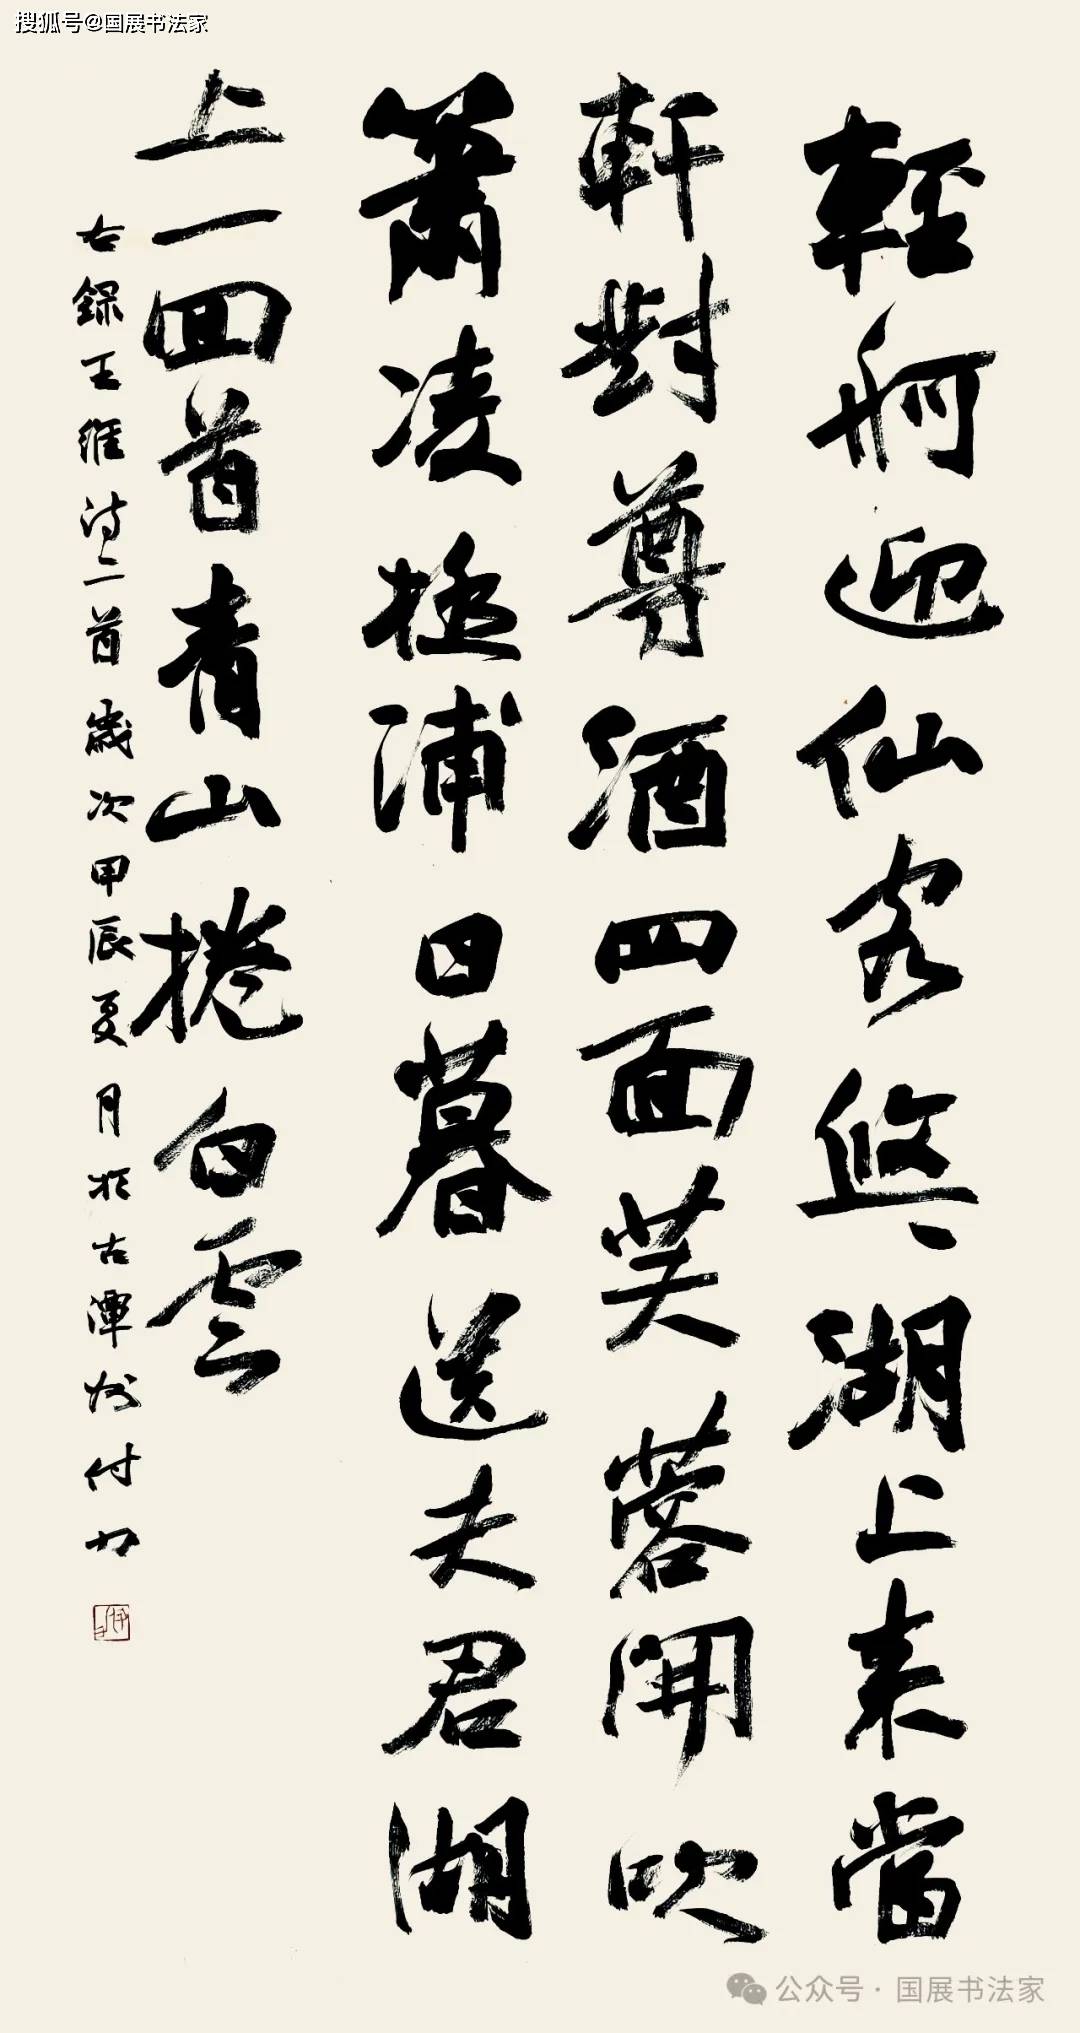 搜狐号@国展书法家
輕舸迎仙客悠悠湖上来當
軒對尊酒四面芙蓉開吹
簫凌極浦日暮送夫君湖
上一回首青山捲白雲
右録王維诗二首歲次甲辰夏月於古潭州付力
公众号·国展书法家